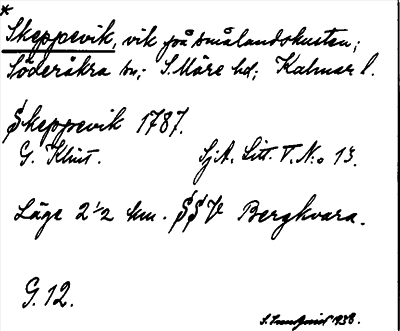 *
Skeppevik, vik på smålandskusten;
Söderåkra sn; S. Möre hd; Kalmar l.
Skeppevik 1787.
G. Klint. SjA. Litt. T. N:o 13.
Läge 2 1/2 km. SSV Bergkvara.
G. 12.
1938.